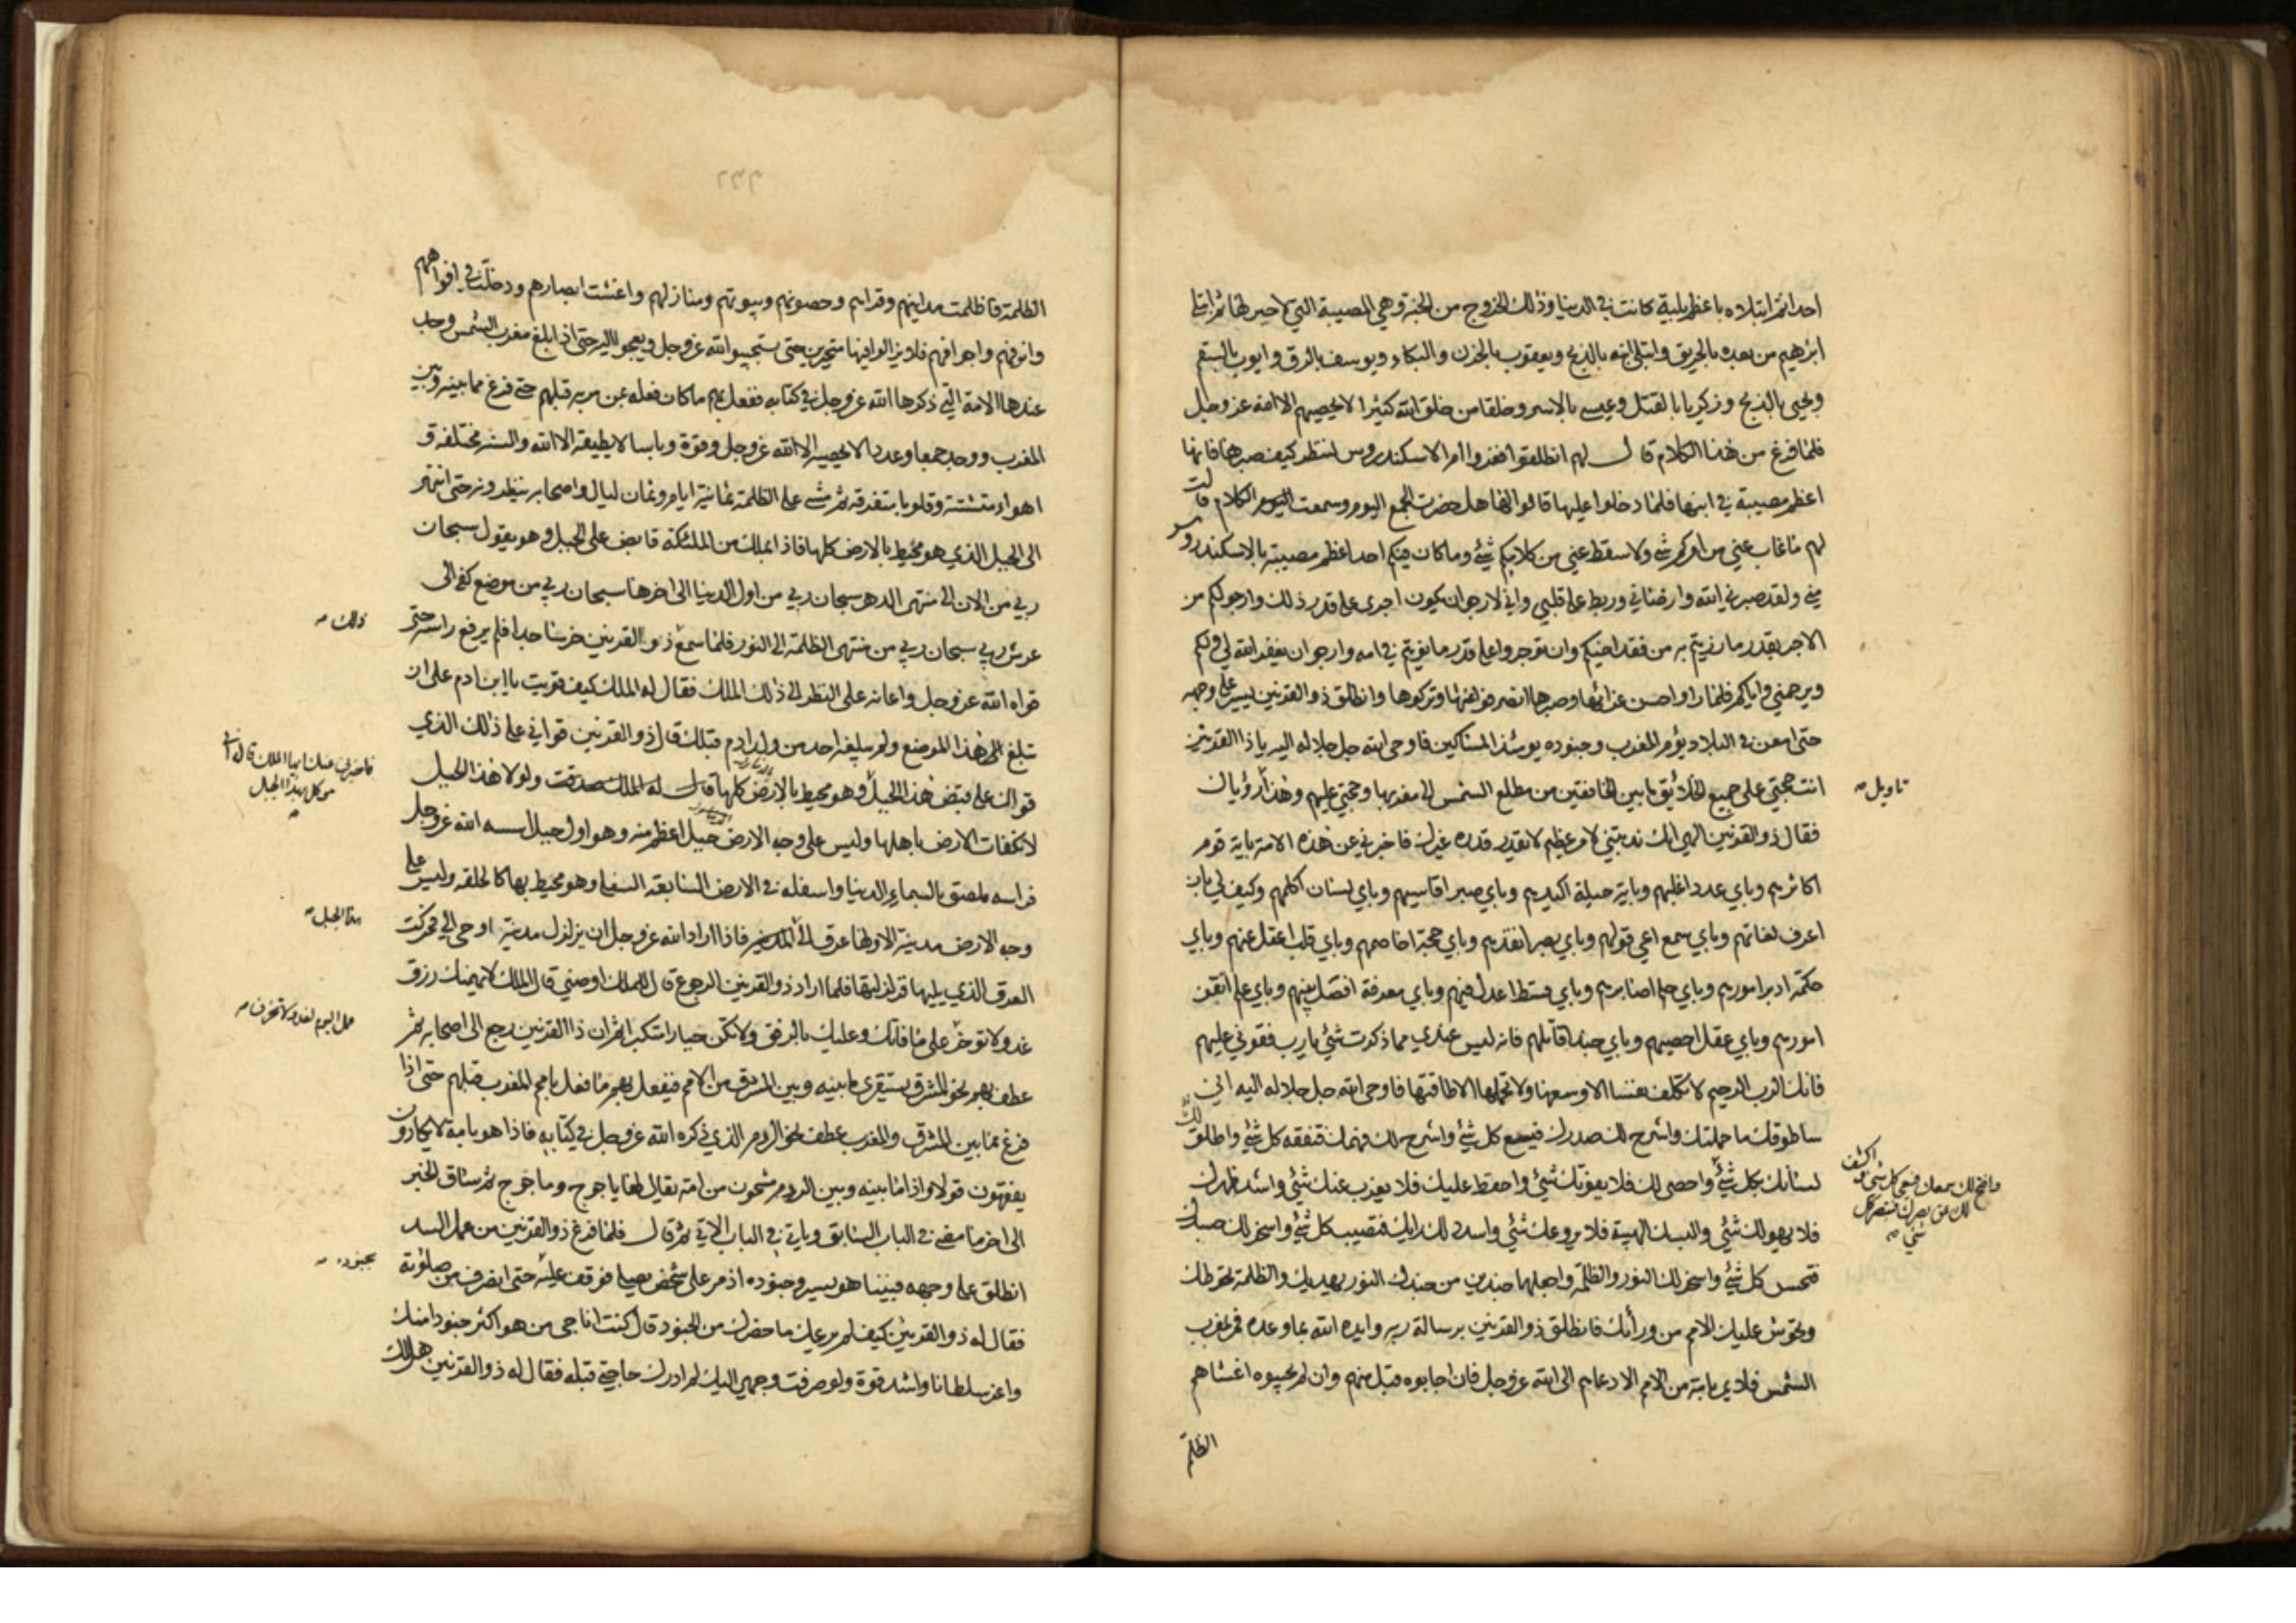 احدا ثم ابتلاه باعظم بلية كانت في الدنيا وذلك الخروج من الجنة وهي المصيبة التي لا جبر لها ثم ابتلى
ابرهيم من بعده بالحريق وابتلى ابنه بالذبح ويعقوب بالحزن والبكاء ويوسف بالرق وايوب بالسقم
ويحيى بالذبح وزكريا بالقتل وعيسى بالاسر وخلقا من خلق الله كثيرا لا يحصيهم الا الله عز وجل
فلما فرغ من هذا الكلام قال لهم انطلقوا فعزوا ام الاسكندروس لننظر كيف صبرها فانها
اعظم مصيبة في ابنها فلما دخلوا عليها قالوا لها هل حضرت الجمع اليوم وسمعت الكلام قالت
لهم ما غاب عني من امركم شئ ولا سقط عني من كلامكم شئ وما كان فيكم احد اعظم مصيبة بالاسكندروس
مني ولقد صبرني الله وارضاني وربط على قلبي واني لارجو ان يكون اجري على قدر ذلك وارجو لكم من
الاجر بقدر ما رزيتم به من فقد اخيكم وان توجروا على قدر ما نويتم في امه وارجو ان يغفر الله لي ولكم
ويرحمني واياكم فلما راوا حسن عزائها وصبرها انصرفوا عنها وتركوها وانطلق ذو القرنين يسير على وجهه
حتى امعن في البلاد يؤم المغرب وجنوده يومئذ المساكين فاوحى الله جل جلاله اليه يا ذا القرنين
انت حجتي على جميع الخلائق ما بين الخافقين من مطلع الشمس الى مغربها وحجتي عليهم وهذا رؤياك
تاويل
فقال ذو القرنين الهي انك ندبتني لامر عظيم لا يقدر قدره غيرك فاخبرني عن هذه الامة باية قوم
اكاثرهم وباي عدد اغلبهم وباية حيلة اكيدهم وباي صبر اقاسيهم وباي لسان اكلمهم وكيف لي بان
اعرف لغاتهم وباي سمع اعي قولهم وباي بصر انفذهم وباي حجة اخاصمهم وباي قلب اعقل عنهم وباي
حكمة ادبر امورهم وباي حلم اصابرهم وباي قسط اعدل فيهم وباي معرفة افصل بينهم وباي علم اتقن
امورهم وباي عقل احصيهم وباي جند اقاتلهم فانه ليس عندي مما ذكرت شئ يا رب فقوني عليهم
فانك الرب الرحيم لا تكلف نفسا الا وسعها ولا تحملها الا طاقتها فاوحى الله جل جلاله اليه اني
ساطوقك ما حملتك واشرح لك صدرك فيسع كل شئ واشرح لك فهمك فتفقه كل شئ واطلق لك
لسانك بكل شئ واحصي لك فلا يفوتك شئ واحفظ عليك فلا يعزب عنك شئ واشد ظهرك
وافتح لك سمعك فتعي كل شئ واكشف
لك عن بصرك فتبصر كل
شئ
فلا يهولك شئ والبسك الهيبة فلا يروعك شئ واسدد لك رايك فتصيب كل شئ واسخر لك جسدك
فتحس كل شئ واسخر لك النور والظلمة واجعلهما جندين من جندك النور يهديك والظلمة تحوطك
وتحوش عليك الامم من ورائك فانطلق ذو القرنين برسالة ربه وايده الله بما وعده فمر بمغرب
الشمس فلا يمر بامة من الامم الا دعاهم الى الله عز وجل فان اجابوه قبل منهم وان لم يجيبوه اغشاهم
الظلمة
الظلمة فاظلمت مداينهم وقراهم وحصونهم وبيوتهم ومنازلهم واغشت ابصارهم ودخلت في افواههم
وانوفهم واجوافهم فلا يزالوا فيها متحيرين حتى يستجيبوا لله عز وجل ويعجوا اليه حتى اذا بلغ مغرب الشمس وجد
عندها الامة التي ذكرها الله عز وجل في كتابه ففعل بهم ما كان فعله بمن مر به قبلهم حتى فرغ مما بينه وبين
المغرب ووجد جمعا وعددا لا يحصيه الا الله عز وجل وقوة وباسا لا يطيقه الا الله والسنة مختلفة و
اهواء متشتتة وقلوبا متفرقة ثم مشى على الظلمة ثمانية ايام وثمان ليال واصحابه ينظرونه حتى انتهى
الى الجبل الذي هو محيط بالارض كلها فاذا بملك من الملئكة قابض على الجبل وهو يقول سبحان
ربي من الان الى منتهى الدهر سبحان ربي من اول الدنيا الى اخرها سبحان ربي من موضع كفي الى
عرش ربي سبحان ربي من منتهى الظلمة الى النور فلما سمع ذو القرنين خر ساجدا فلم يرفع راسه حتى
ذلك
قواه الله عز وجل واعانه على النظر الى ذلك الملك فقال له الملك كيف قويت يا ابن ادم على ان
تبلغ الى هذا الموضع ولم يبلغه احد من ولد ادم قبلك قال ذو القرنين قواني على ذلك الذي
قواك على قبض هذا الجبل وهو محيط بالارض كلها قال له الملك صدقت ولولا هذا الجبل
فاخبرني عنك ايها الملك قال اني
موكل بهذا الجبل
لانكفات الارض باهلها وليس على وجه الارض جبل اعظم منه وهو اول جبل اسسه الله عز وجل
فراسه ملصق بالسماء الدنيا واسفله في الارض السابعة السفلى وهو محيط بها كالحلقة وليس على
وجه الارض مدينة الا ولها عرق الى فاذا اراد الله عز وجل ان يزلزل مدينة اوحى الي فحركت
هذا الجبل
العرق الذي يليها فزلزلتها فلما اراد ذو القرنين الرجوع قال للملك اوصني قال الملك لا يهمنك رزق
غد ولا تؤخر عمل اليوم لغد ولا تحزن على ما فاتك وعليك بالرفق ولا تكن جبارا متكبرا ثم ان ذا القرنين رجع الى اصحابه ثم
عطف بهم نحو المشرق يستقري ما بينه وبين المشرق من الامم فيفعل بهم ما فعل بامم المغرب قبلهم حتى اذا
فرغ مما بين المشرق والمغرب عطف نحو الردم الذي ذكره الله عز وجل في كتابه فاذا هو بامة لا يكادون
يفقهون قولا واذا ما بينه وبين الردم مشحون من امة يقال لها ياجوج وماجوج ثم ساق الخبر
الى اخر ما مضى في الباب السابق وياتي في الباب الاتي ثم قال فلما فرغ ذو القرنين من عمل السد
انطلق على وجهه فبينا هو يسير وجنوده اذ مر على شخص يصلي فوقف عليه حتى انصرف من صلوته
بجنوده
فقال له ذو القرنين كيف لم يرعك ما حضرك من الجنود قال كنت اناجي من هو اكثر جنودا منك
واعز سلطانا واشد قوة ولو صرفت وجهي اليك لم ادرك حاجتي قبله فقال له ذو القرنين هل لك